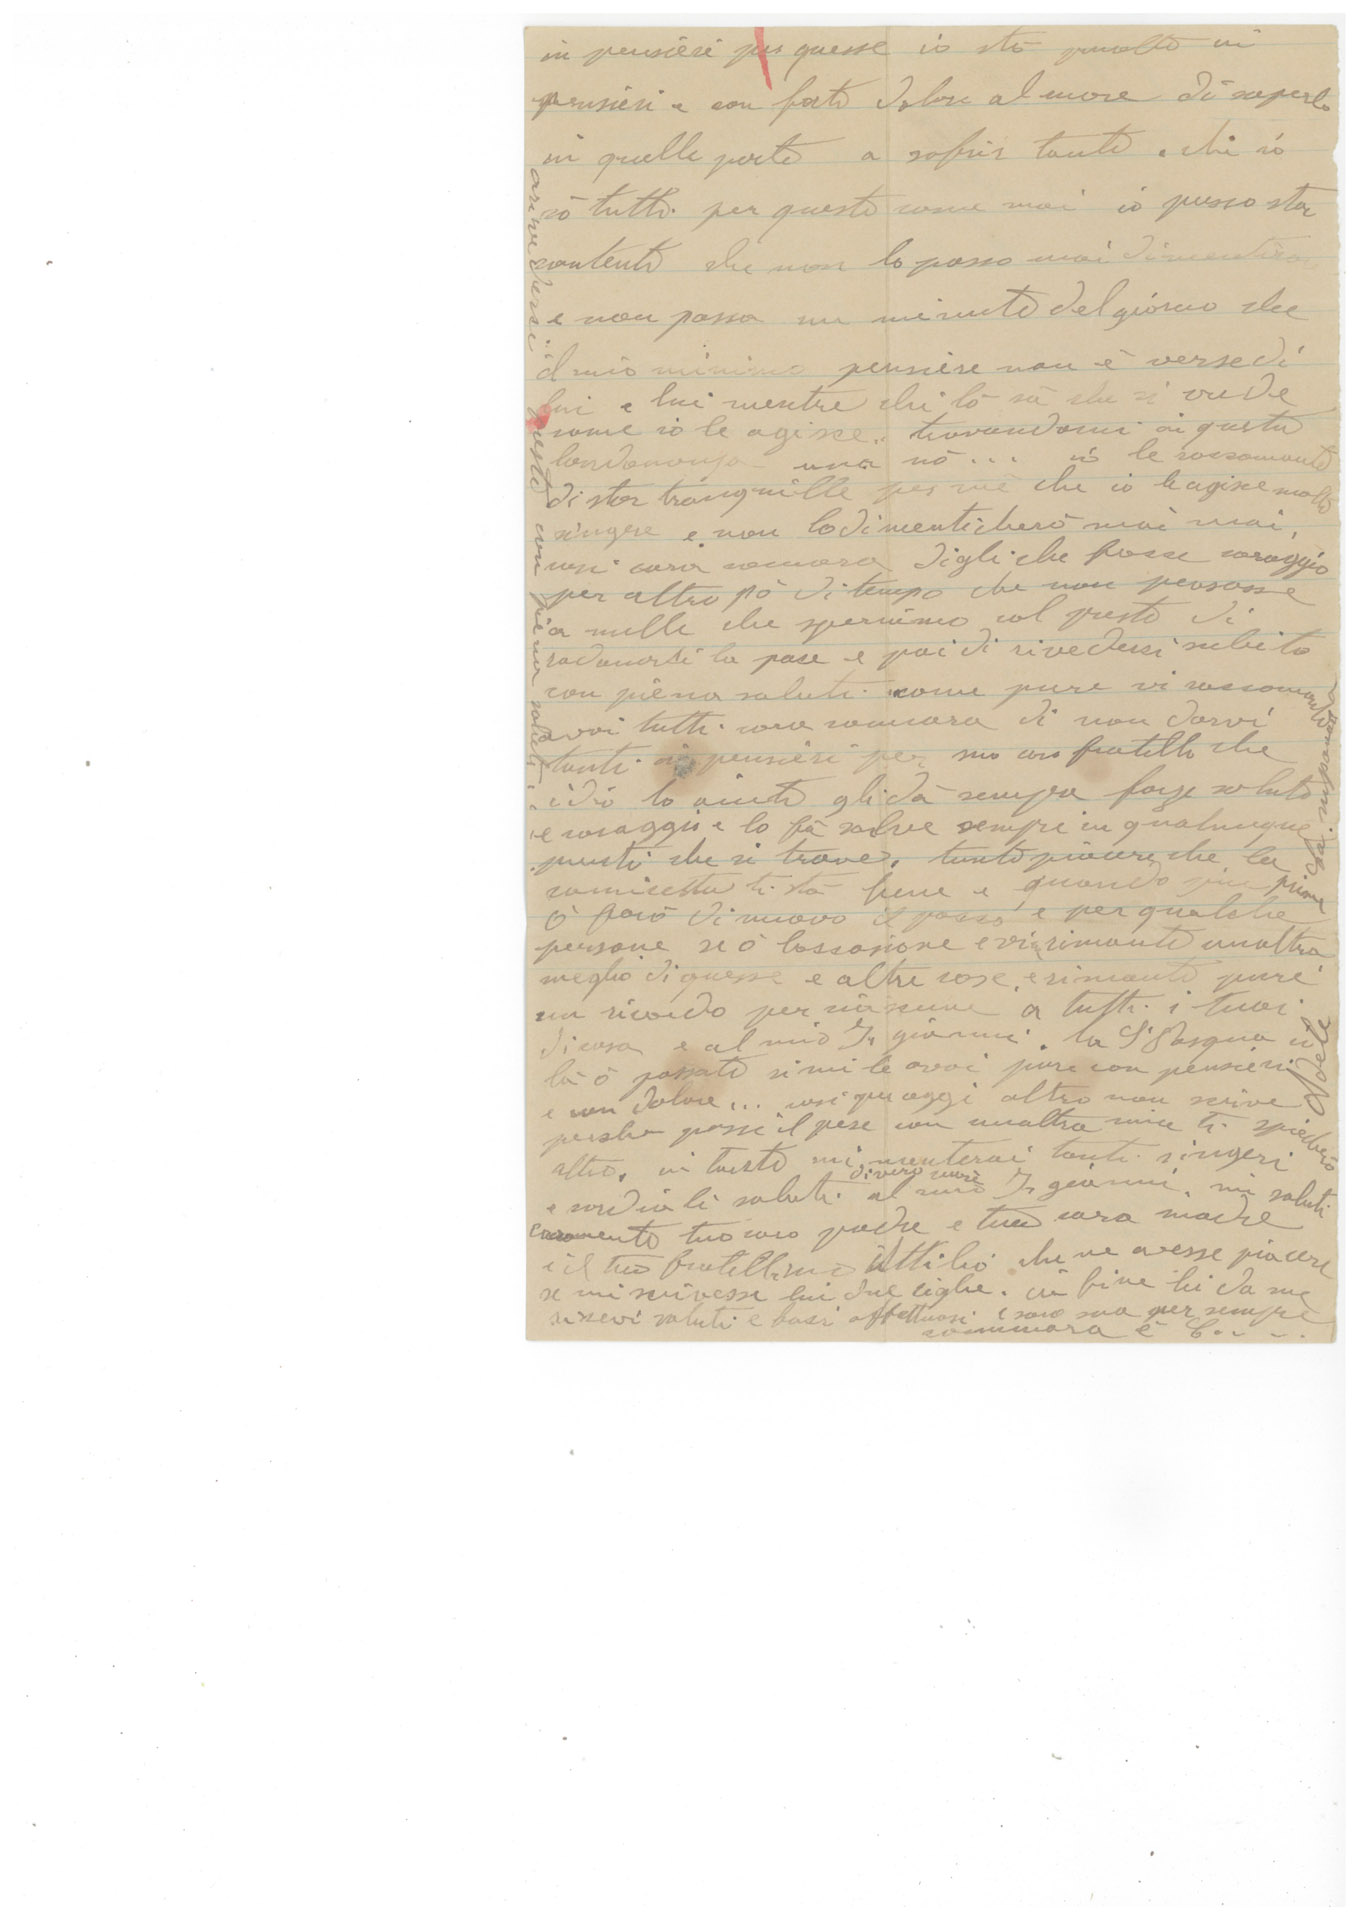 in pensieri per quesse io stò molto in
pensieri e con forte dolore al core di saperlo
in quelle parte a sofrir tanto. chi io
sò tutto. per questo come mai io posso star
contento che non lo posso mai dimenticar
e non passa un minuto del giorno che
il mio minimo pensiere non è verse di
lui e lui mentre chi lò sà che si vede
come io le agisce. trovandomi in questa
londananza una nò... io le raccomanto
di star tranquille per me che io le agisce molto
singere e non lo dimenticherò mai mai
così cara commara digli che fosse coraggio
per altro pò di tempo che non pensasse
a nulle che speriamo col presto di
radunarsi la pase e poi di rivedersi subito
con piena saluti. come pure vi raccomanto
a voi tutti. cara commara di non darvi
tanti pensieri per suo caro fratello che
idio lo aiuti gli dà sempre forze saluto
e coraggio e lo fà salve sempre in qualunque
punti che si trove. tanto piacere che la
camicetta ti stà bene e quando
ò farò di nuovo il passo e per qualche
persone se ò loccasione e vi rimanto unaltra
meglio di quesse e altre cose. e rimanto pure
un ricordo per ciascune a tutti i tuoi
di casa e al mio Fr giovanni. la S. Pasqua io
là ò passato simile a voi pure con pensieri
e con dolore... così per oggi altro non scrive
perche passi il pese con unaltra mia ti spiegherò
altro. in tanto mi menterai tanti singeri
e cordiali saluti di vero core al mio Fr giovanni. mi saluti
caramento tuo caro padre e tua cara madre
e il tuo fratellino Attilio che ne avesse piacere
se mi scrivesse lui due righe. in fine tu da me
ricevi saluti e baci affettuosi e sono sua per sempre
commara e C.....
Adele
arivedersi presto con piena saluti